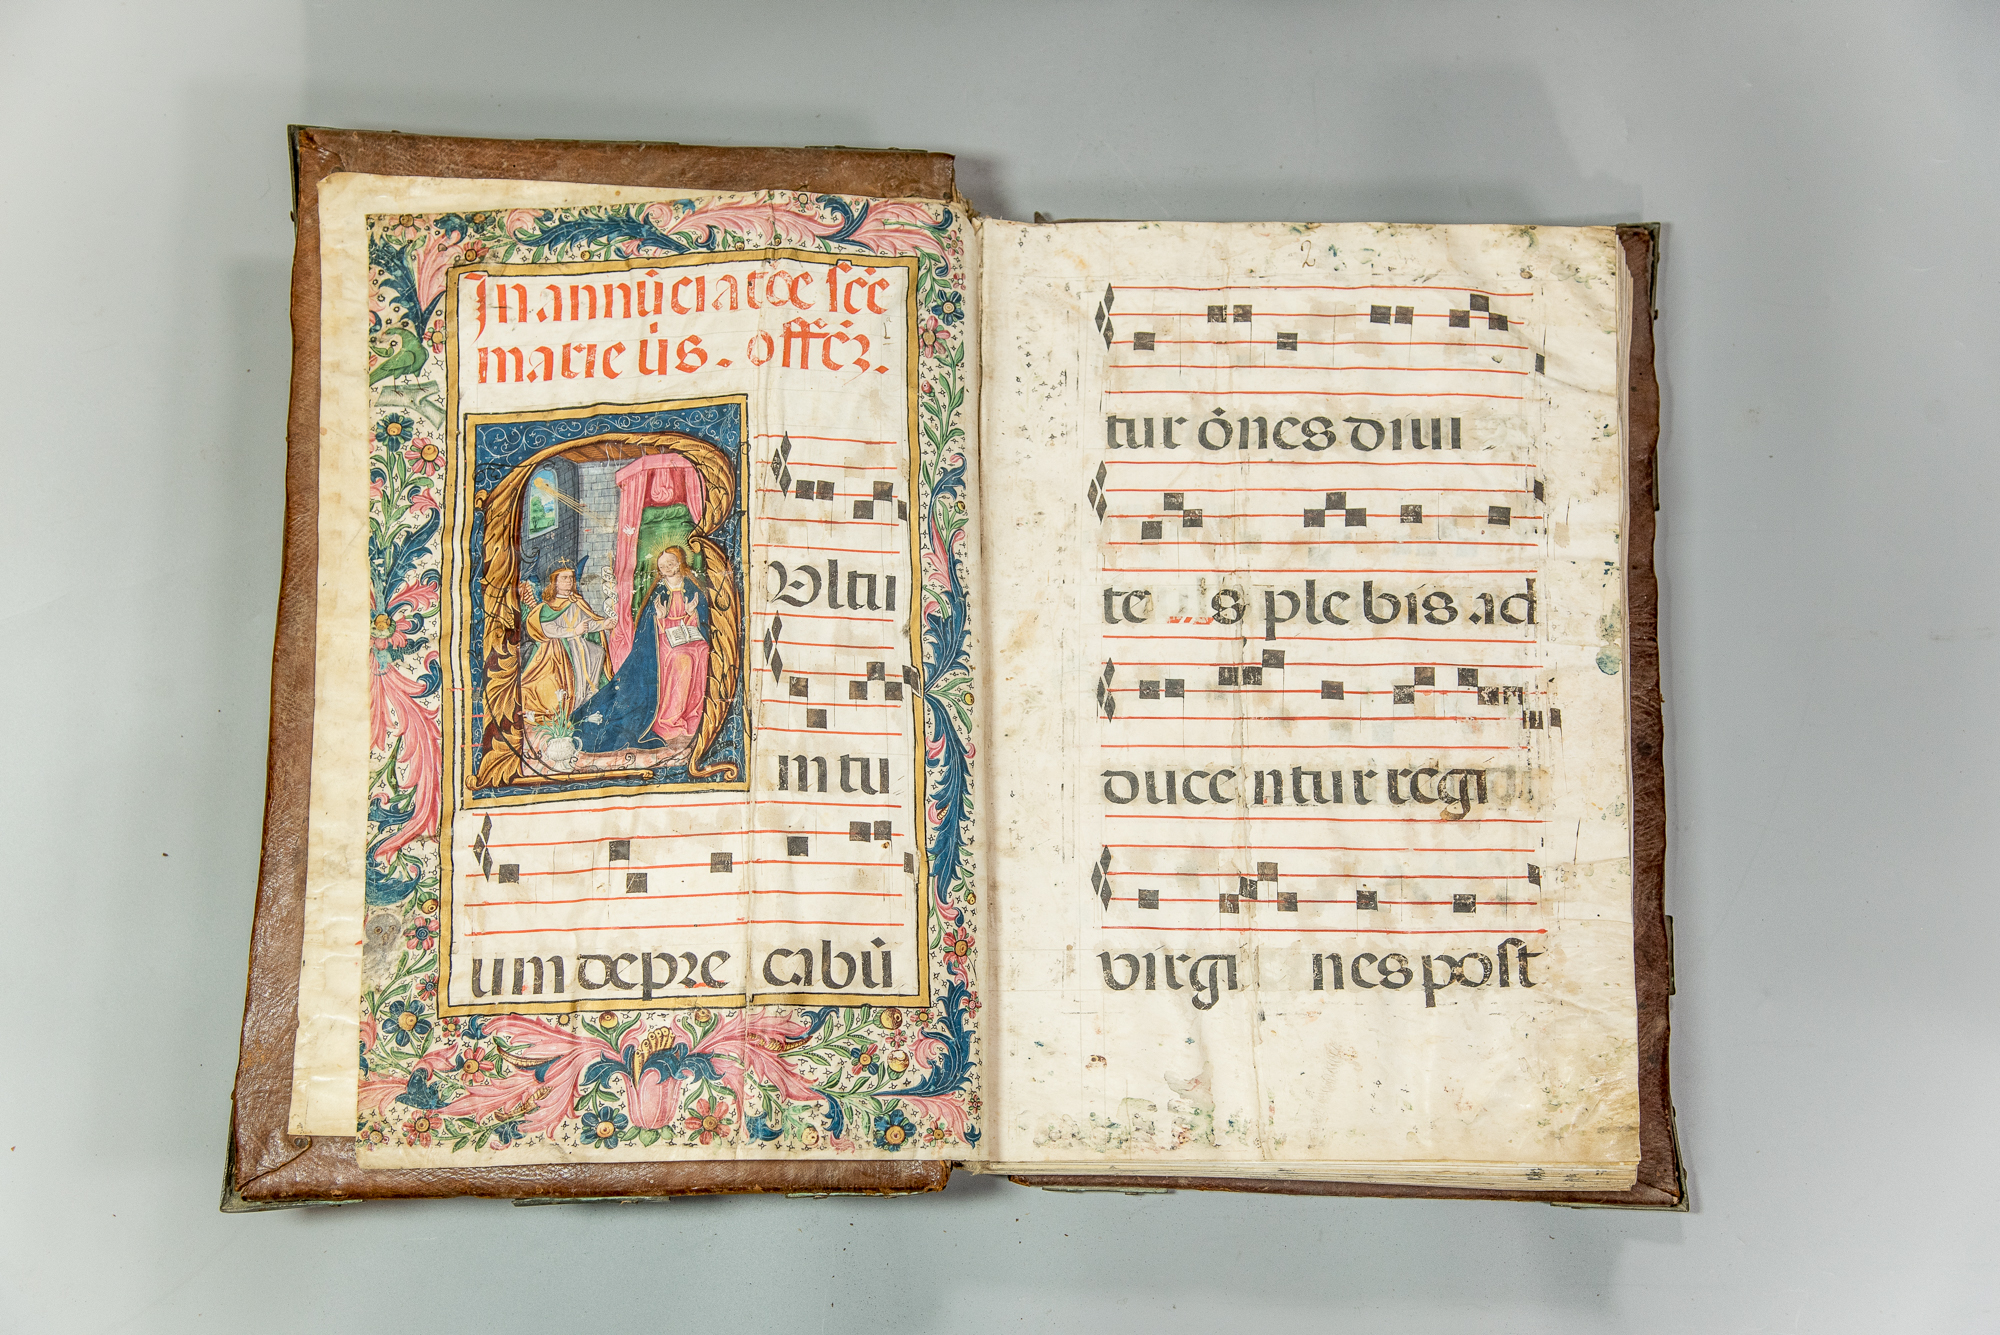 In annūciatōe scē
marie ūs. offērꝫ.
Vltu
m tu
um depre cabū
2
tur ōnes diui
te s plebis ad
ducentur regi
virgi nes post